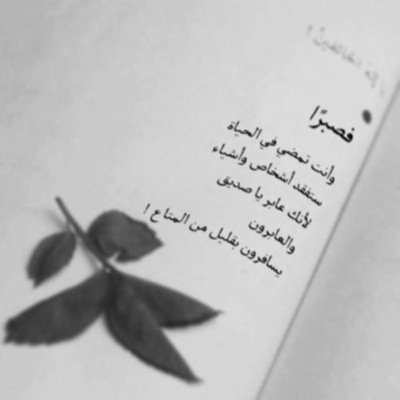 فصبرًا
وأنت تمضي في الحياة
ستفقد أشخاص وأشياء
لأنك عابر يا صديق
والعابرون
يسافرون بقليل من المتاع !